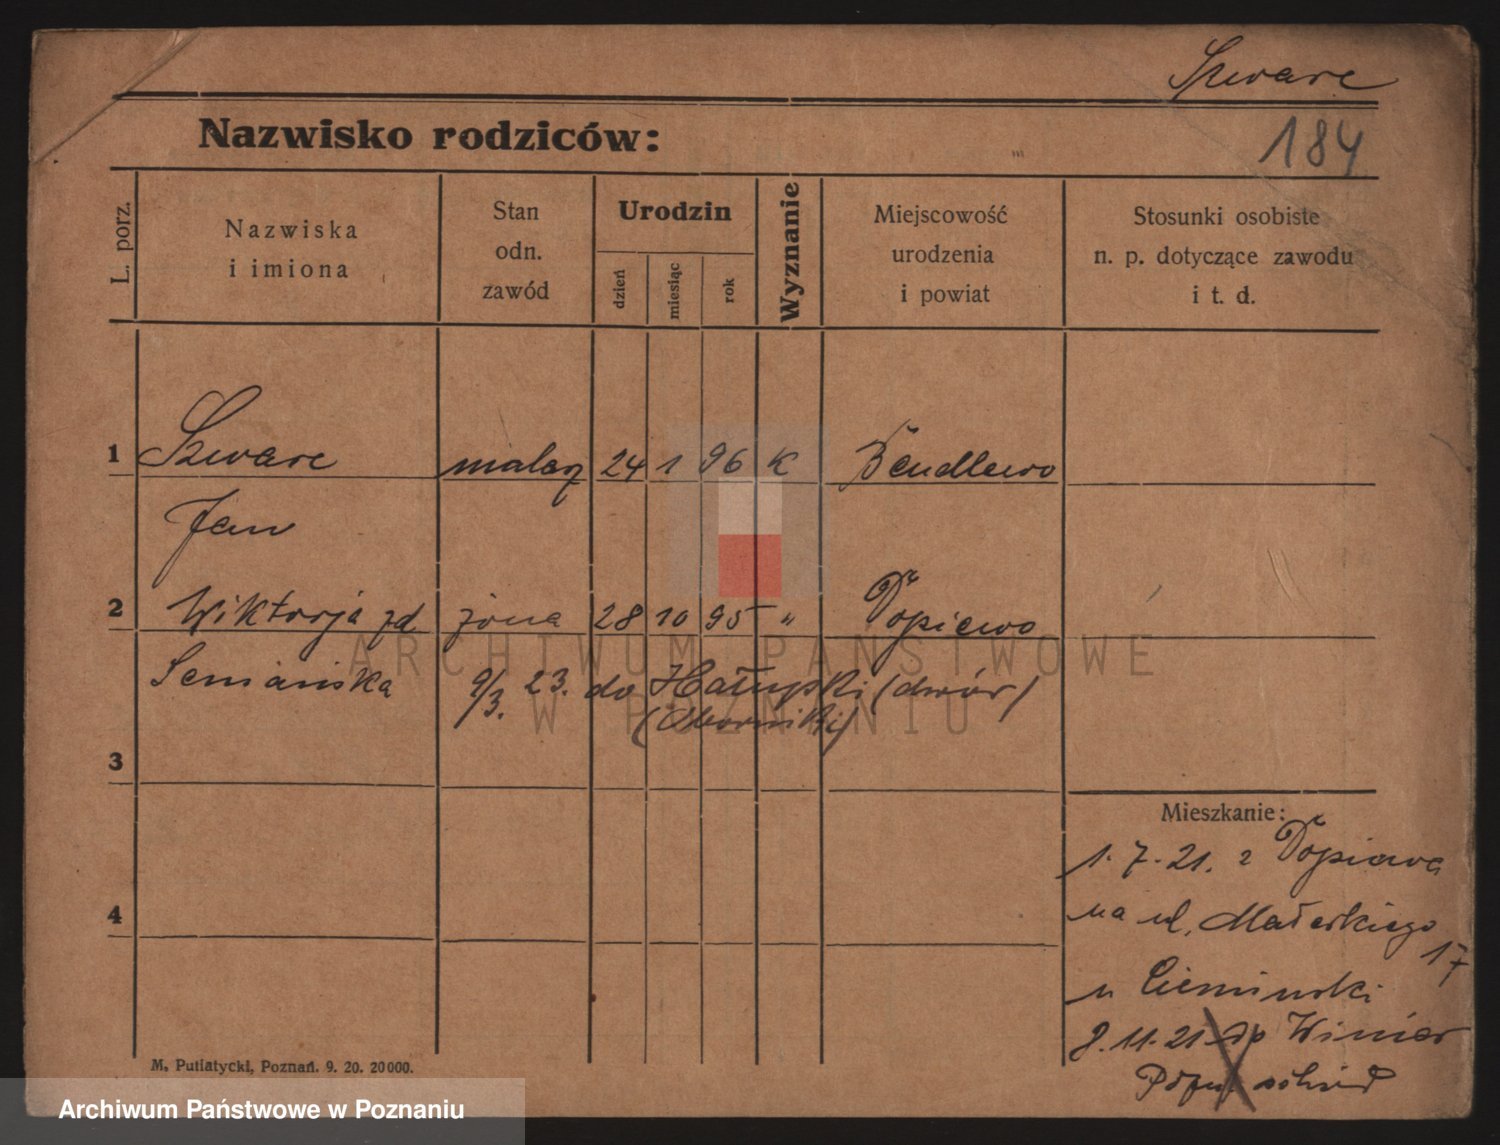 Szwarc
184
Nazwisko rodziców:
L. porz.
Nazwiska
i imiona
Stan
odn.
zawód
Urodzin
dzień
miesiąc
rok
Wyznanie
Miejscowość
urodzenia
i powiat
Stosunki osobiste
n. p. dotyczące zawodu
i t. d.
1 Szwarc malarz 24 1 96 K Bendlewo
Jan
2 Wiktorja zd żona 28 10 95 " Dopiewo
9/3. 23. do (dwór)
(Oborniki)
3
Mieszkanie:
1. 7. 21. z Dopiewa
4
na ul. Małeckiego
17
u Ciemiński
8. 11. 21 do Winiar
M. Putiatycki, Poznań. 9. 20. 20000.
ARCHIWUM PAŃSTWOWE
W POZNANIU
Archiwum Państwowe w Poznaniu